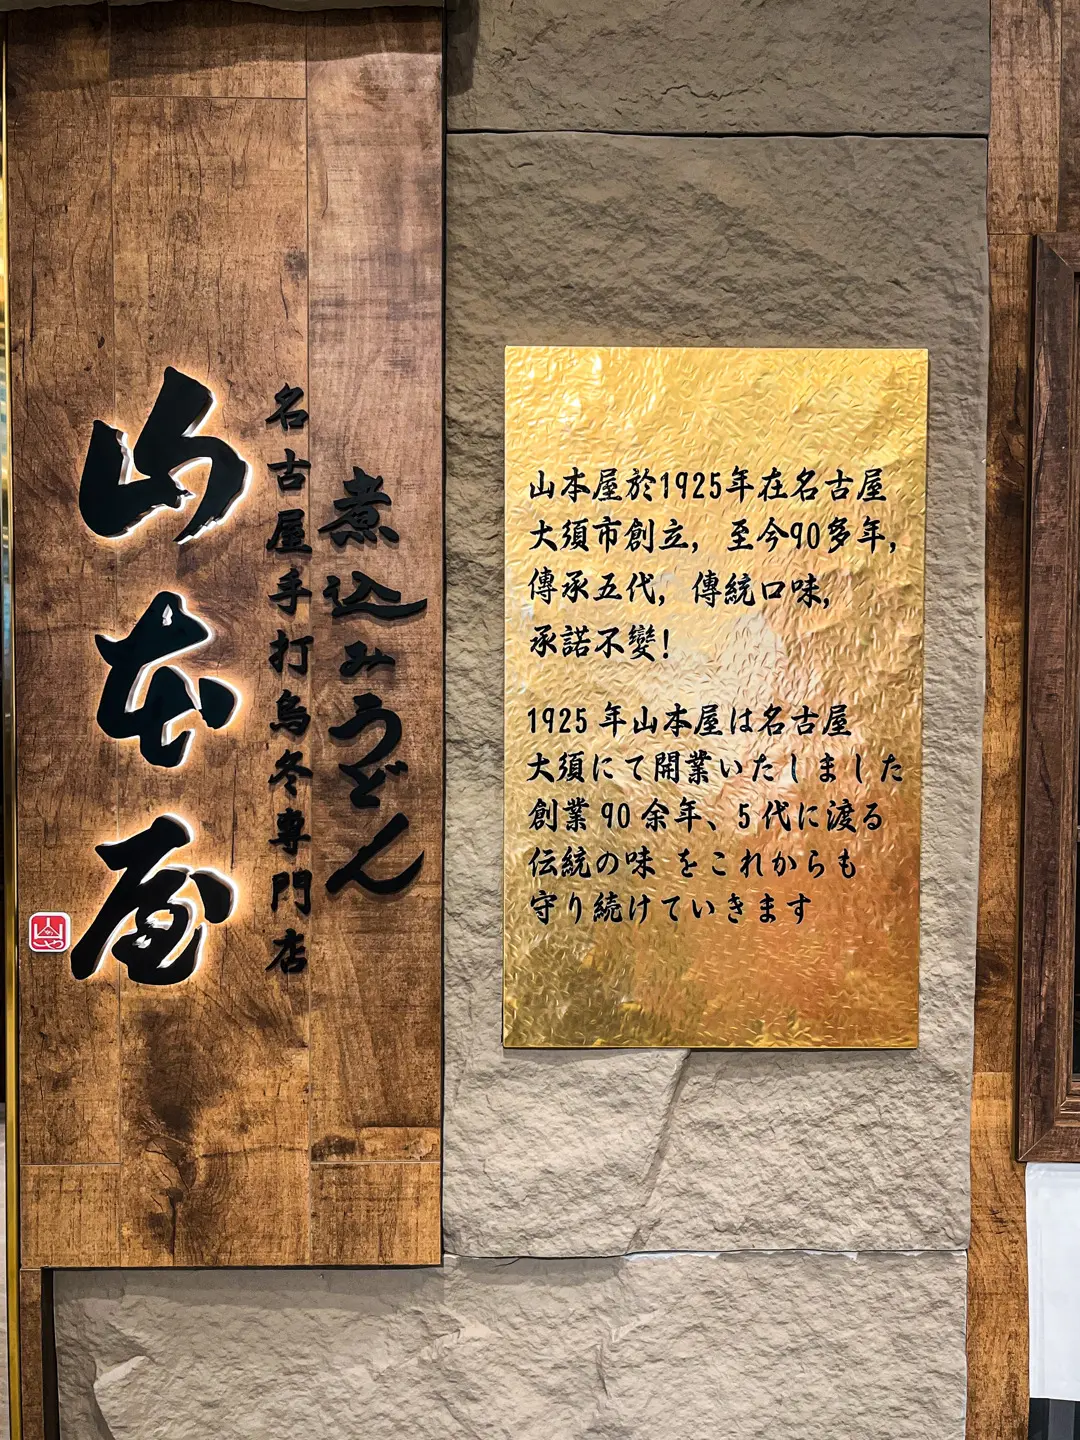 煮込みうどん
名古屋手打烏冬専門店
山本屋
山本屋於1925年在名古屋
大須市創立，至今90多年，
傳承五代，傳統口味，
承諾不變！
1925年山本屋は名古屋
大須にて開業いたしました
創業90余年、5代に渡る
伝統の味 をこれからも
守り続けていきます